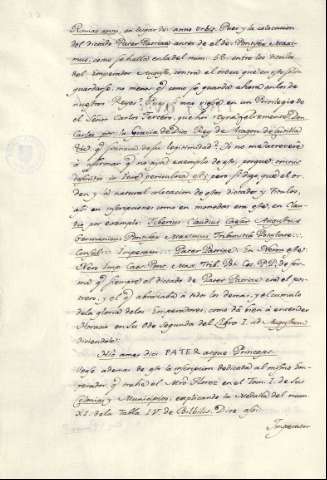 Romanos, en lugar de: anno Urbis. Pues y la colocacion
del dictado Pater Patriae antes de el de Pontifex Maxi-
mus, como se halla en la del num. IX. entre los titulos
del Emperador Augusto, contra el orden que en esto solia
guardarse, no menos q como se guarda ahora en los de
nuestro Reyes? Pues si mas viejos en un Privilegio de
el Señor Carlos Tercero, que hoy reyna, leyeramos Don
Carlos por la Gracia de Dios Rey de Aragon, de Castilla
&c. q. se à de su legitimidad? Yo no me atrevo
à afirmar q no haya exemplo de esto, porque omnis
definitio in Jure periculosa est; pero sí digo, que el or-
den y la natural colocacion de estos dictados y titulos,
asi en inscripciones como en monedas era esta, en Clau-
dio por exemplo: Tiberius Claudius Caesar Augustus
Germanicus Pontifex Maximus Tribunitia Potestate...
Consul... Imperator... Pater Patriae. En Neron esta:
Nero Imp. Caes. Pont. Max. Trib. Pot. Cos. P.P. de for-
ma q siempre el dictado de Pater Patriae era el pos-
trero, y el q abrazaba à todos los demas, y el cumulo
de la gloria de los Emperadores, como dà bien à entender
Horacio en su Oda segunda del Libro I. ad Augustum
diciendole:
Hic ames dici PATER atque Princeps.
Vease ademas de esto la inscripcion dedicada al mismo Em-
perador, q trahe el Mro Florez en el Tom. I. de sus
Colonias y Municipios, explicando la Medalla del num.
XI. de la Tabla IV. de Bilbilis. Dice asi:
Imperator